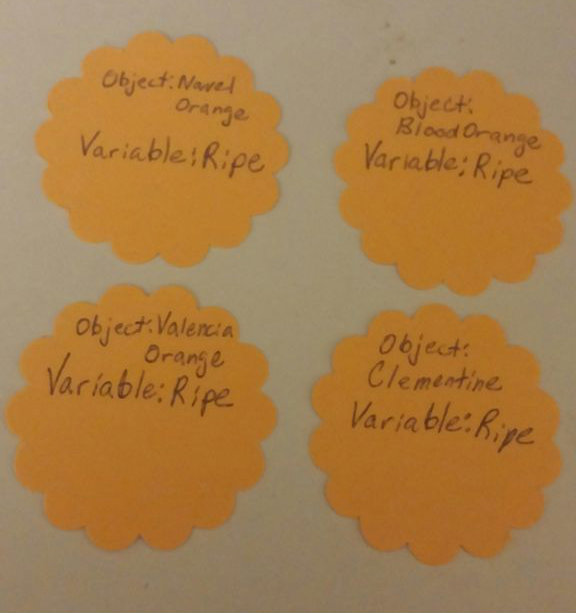 Object: Navel
Orange
Variable: Ripe
Object:
Blood Orange
Variable: Ripe
Object: Valencia
Orange
Variable: Ripe
Object:
Clementine
Variable: Ripe